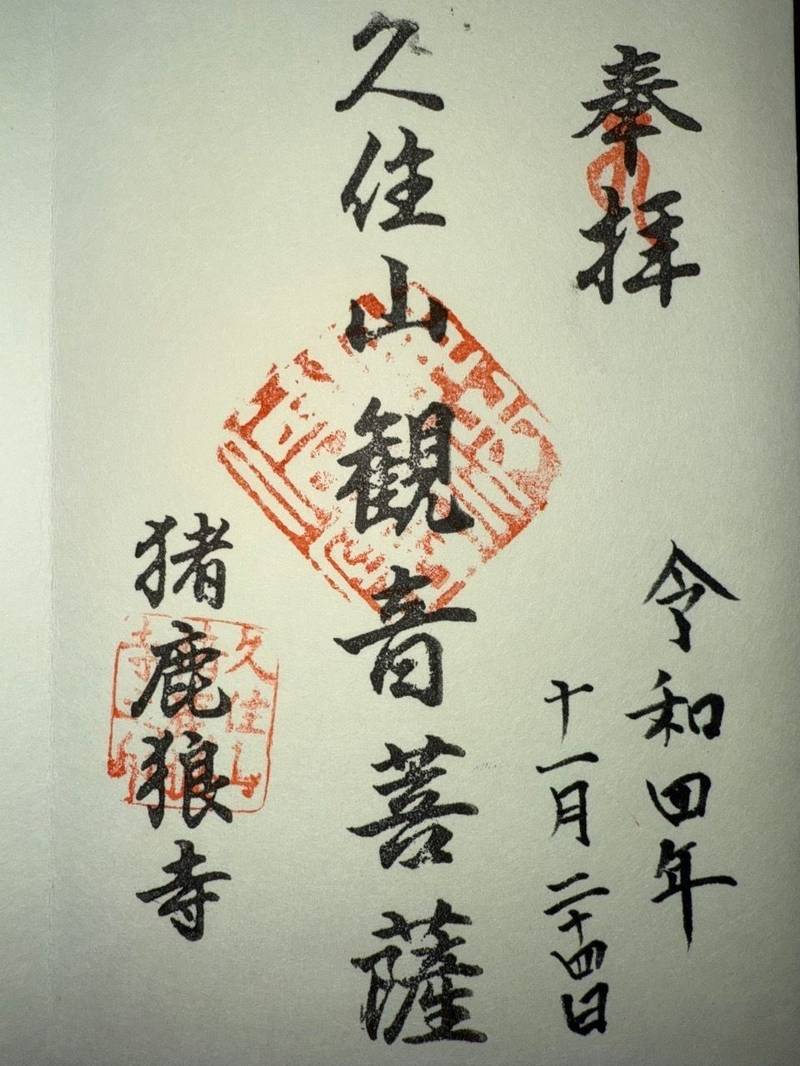 奉拝
令和四年
十一月二十四日
久住山観音菩薩
猪鹿狼寺
久住山